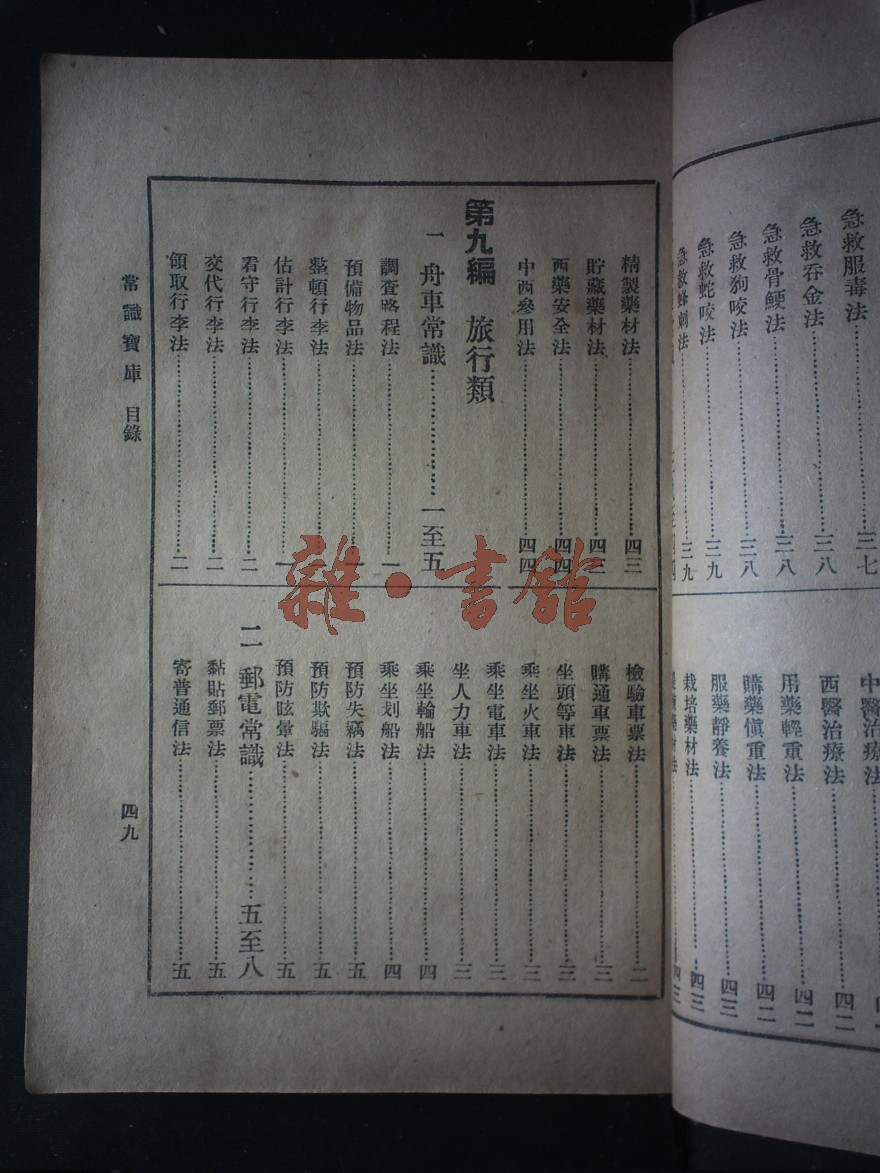 急救服毒法……三七
急救吞金法……三八
急救骨鯁法……三八
急救狗咬法……三八
急救蛇咬法……三九
急救蜂刺法……三九
中醫治療法
西醫治療法……四二
用藥輕重法……四二
購藥慎重法……四二
服藥靜養法……四三
栽培藥材法……四三
精製藥材法……四三
貯藏藥材法……四三
西藥安全法……四四
中西參用法……四四
第九編 旅行類
一 舟車常識……一至五
調查路程法……一
預備物品法……一
整頓行李法……一
估計行李法……一
看守行李法……二
交代行李法……二
領取行李法……二
檢驗車票法……二
購通車票法……三
坐頭等車法……三
乘坐火車法……三
乘坐電車法……三
坐人力車法……三
乘坐輪船法……四
乘坐划船法……四
預防失竊法……五
預防欺騙法……五
預防眩暈法……五
二 郵電常識……五至八
黏貼郵票法……五
寄普通信法……五
常識寶庫 目錄
四九
雜·書館